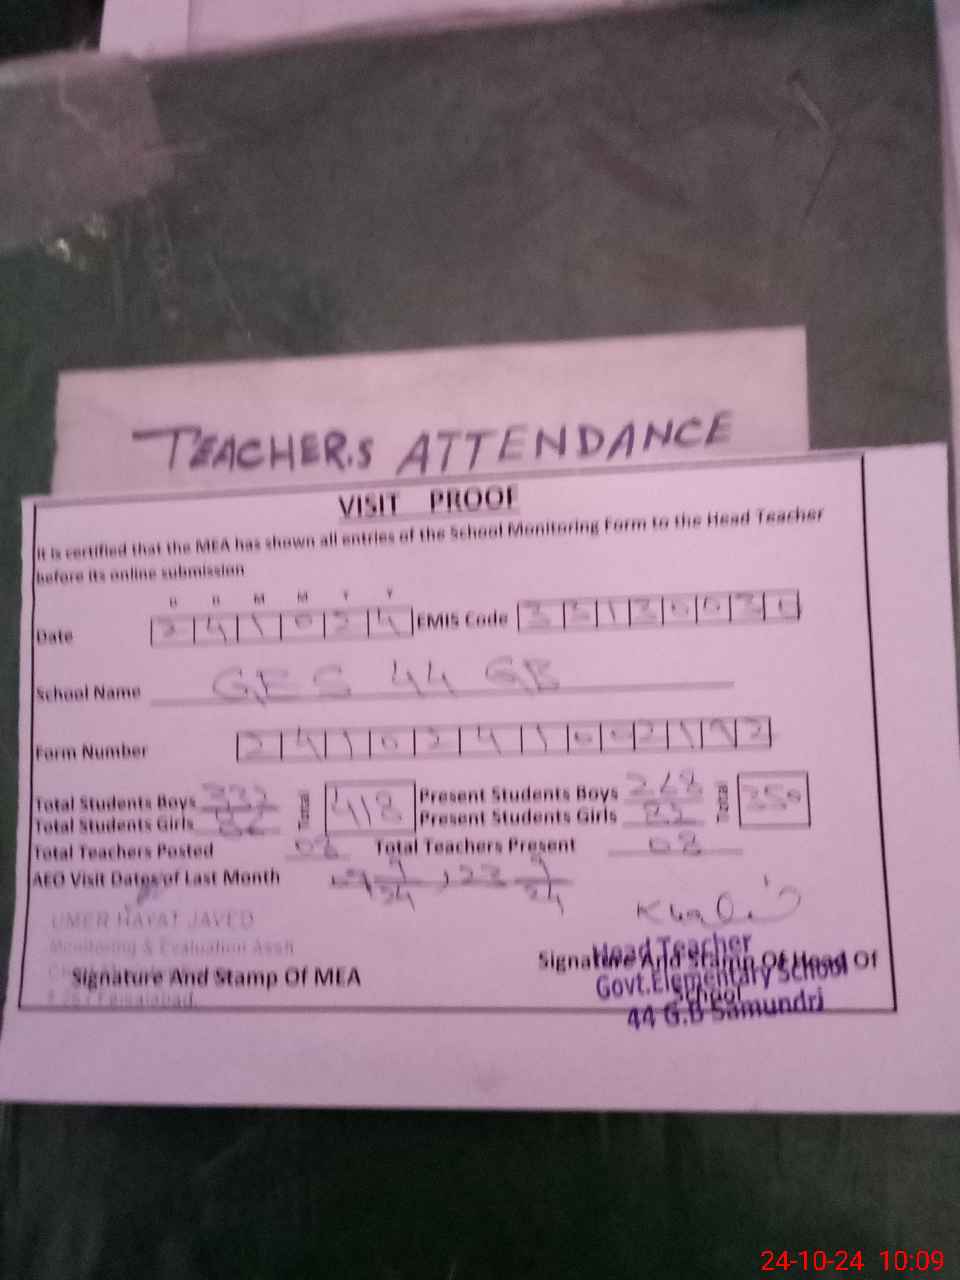 TEACHER.S ATTENDANCE
VISIT PROOF
It is certified that the MEA has shown all entries of the School Monitoring Form to the Head Teacher
before its online submission
D D M M Y Y
Date 241024 EMIS Code
School Name GES 44 GB
Form Number 2410241002192
Total Students Boys 332 Total 418 Present Students Boys 268 Total 350
Total Students Girls 86 Present Students Girls 82
Total Teachers Posted 08 Total Teachers Present 08
AEO Visit Dates of Last Month
UMER HAYAT JAVED
Monitoring & Evaluation Assit
Signature And Stamp Of MEA
Faisalabad.
Signature And Stamp Of Head Of
School
Head Teacher
Govt.Elementary School
44 G.B Samundri
24-10-24 10:09